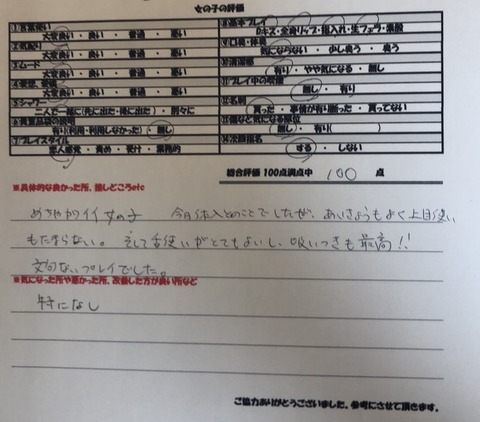 女の子の評価
①言葉使い
大変良い ・ 良い ・ 普通 ・ 悪い
大変良い ・ 良い ・ 普通 ・ 悪い
③ムード
大変良い ・ 良い ・ 普通 ・ 悪い
大変良い ・ 良い ・ 普通 ・ 悪い
⑤シャワー
二人で一緒に(先に出た・後に出た) ・ 別々に
有り(利用・利用しなかった) ・ 無し
⑦プレイスタイル
恋人感覚 ・ 責め ・ 受け ・ 業務的
⑧基本プレイ
Dキス・全身リップ・指入れ・生フェラ・素股
⑨口臭・体臭
気にならない ・ 少し臭う ・ 臭う
有り ・ やや気になる ・ 無し
無し ・ 有り
⑫名刺
貰った ・ 事情が有り断った ・ 貰ってない
無し ・ 有り( )
⑭次回指名
する ・ しない
総合評価 100点満点中 100 点
※具体的な良かった所、推しどころetc
めちゃカワイイ女の子 今日体入とのことでしたが、あいきょうもよく上目使い
もたまらない。そして舌使いがとてもよいし、吸いつきも最高!!
文句ないプレイでした。
※気になった所や悪かった所、改善した方が良い所など
特になし
ご協力ありがとうございました。参考にさせて頂きます。